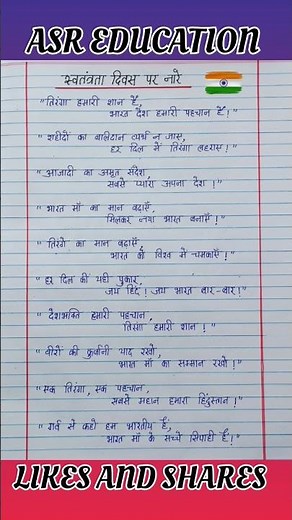 ASR EDUCATION
स्वतंत्रता दिवस पर नारे
"तिरंगा हमारी शान है,
भारत देश हमारी पहचान है!"
"शहीदों का बलिदान व्यर्थ न जाए,
हर दिल में तिरंगा लहराए!"
"आजादी का अमृत संदेश,
सबसे प्यारा अपना देश!"
"भारत माँ का मान बढ़ाएँ,
मिलकर नया भारत बनाएँ!"
"तिरंगे का मान बढ़ाएँ,
भारत को विश्व में चमकाएँ!"
"हर दिल की यही पुकार,
जय हिंद! जय भारत बार-बार!"
"देशभक्ति हमारी पहचान,
तिरंगा हमारी शान!"
"वीरों की कुर्बानी याद रखो,
भारत माँ का सम्मान रखो!"
"एक तिरंगा, एक पहचान,
सबसे महान हमारा हिंदुस्तान!"
"गर्व से कहो हम भारतीय हैं,
भारत माँ के सच्चे सिपाही हैं!"
LIKES AND SHARES